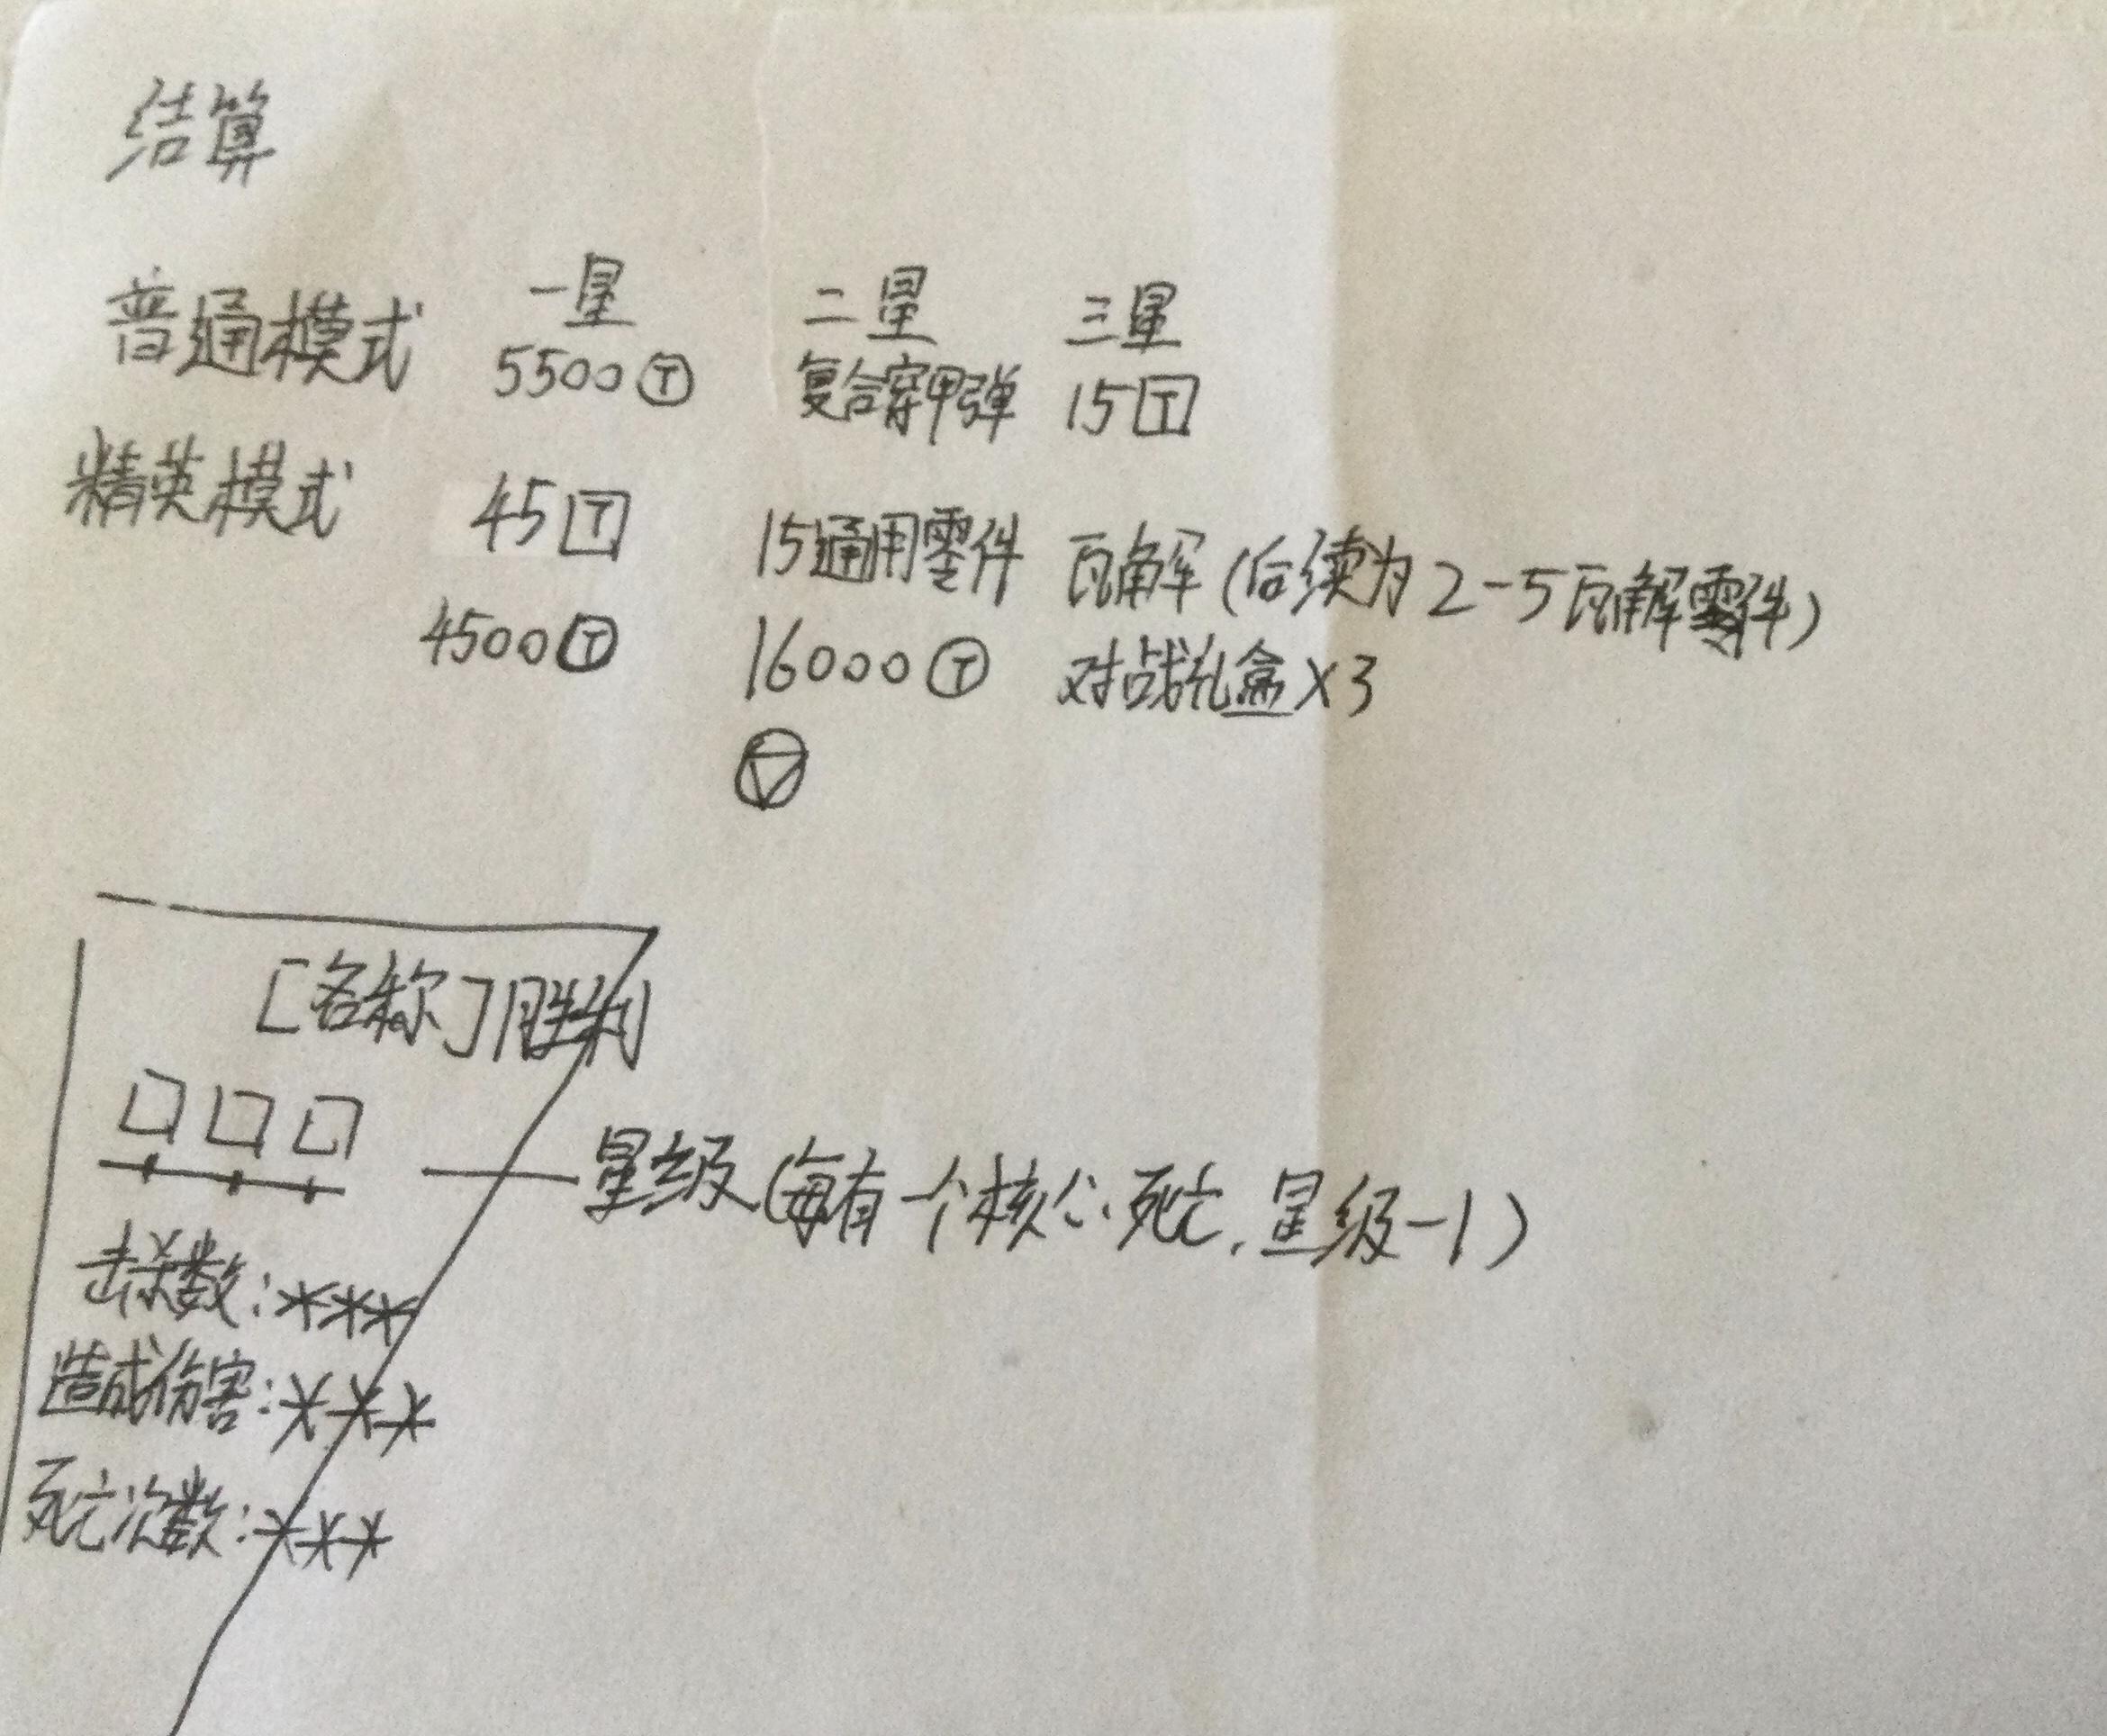 结算
一星 二星 三星
普通模式 5500Ⓣ 复合穿甲弹 15🅃
精英模式 45🅃 15通用零件 瓦解(后续为2-5瓦解零件)
4500Ⓣ 16000Ⓣ 对战礼盒×3
[名称]胜利
星级(每有一个核心死亡,星级-1)
击杀数:***
造成伤害:***
死亡次数:***